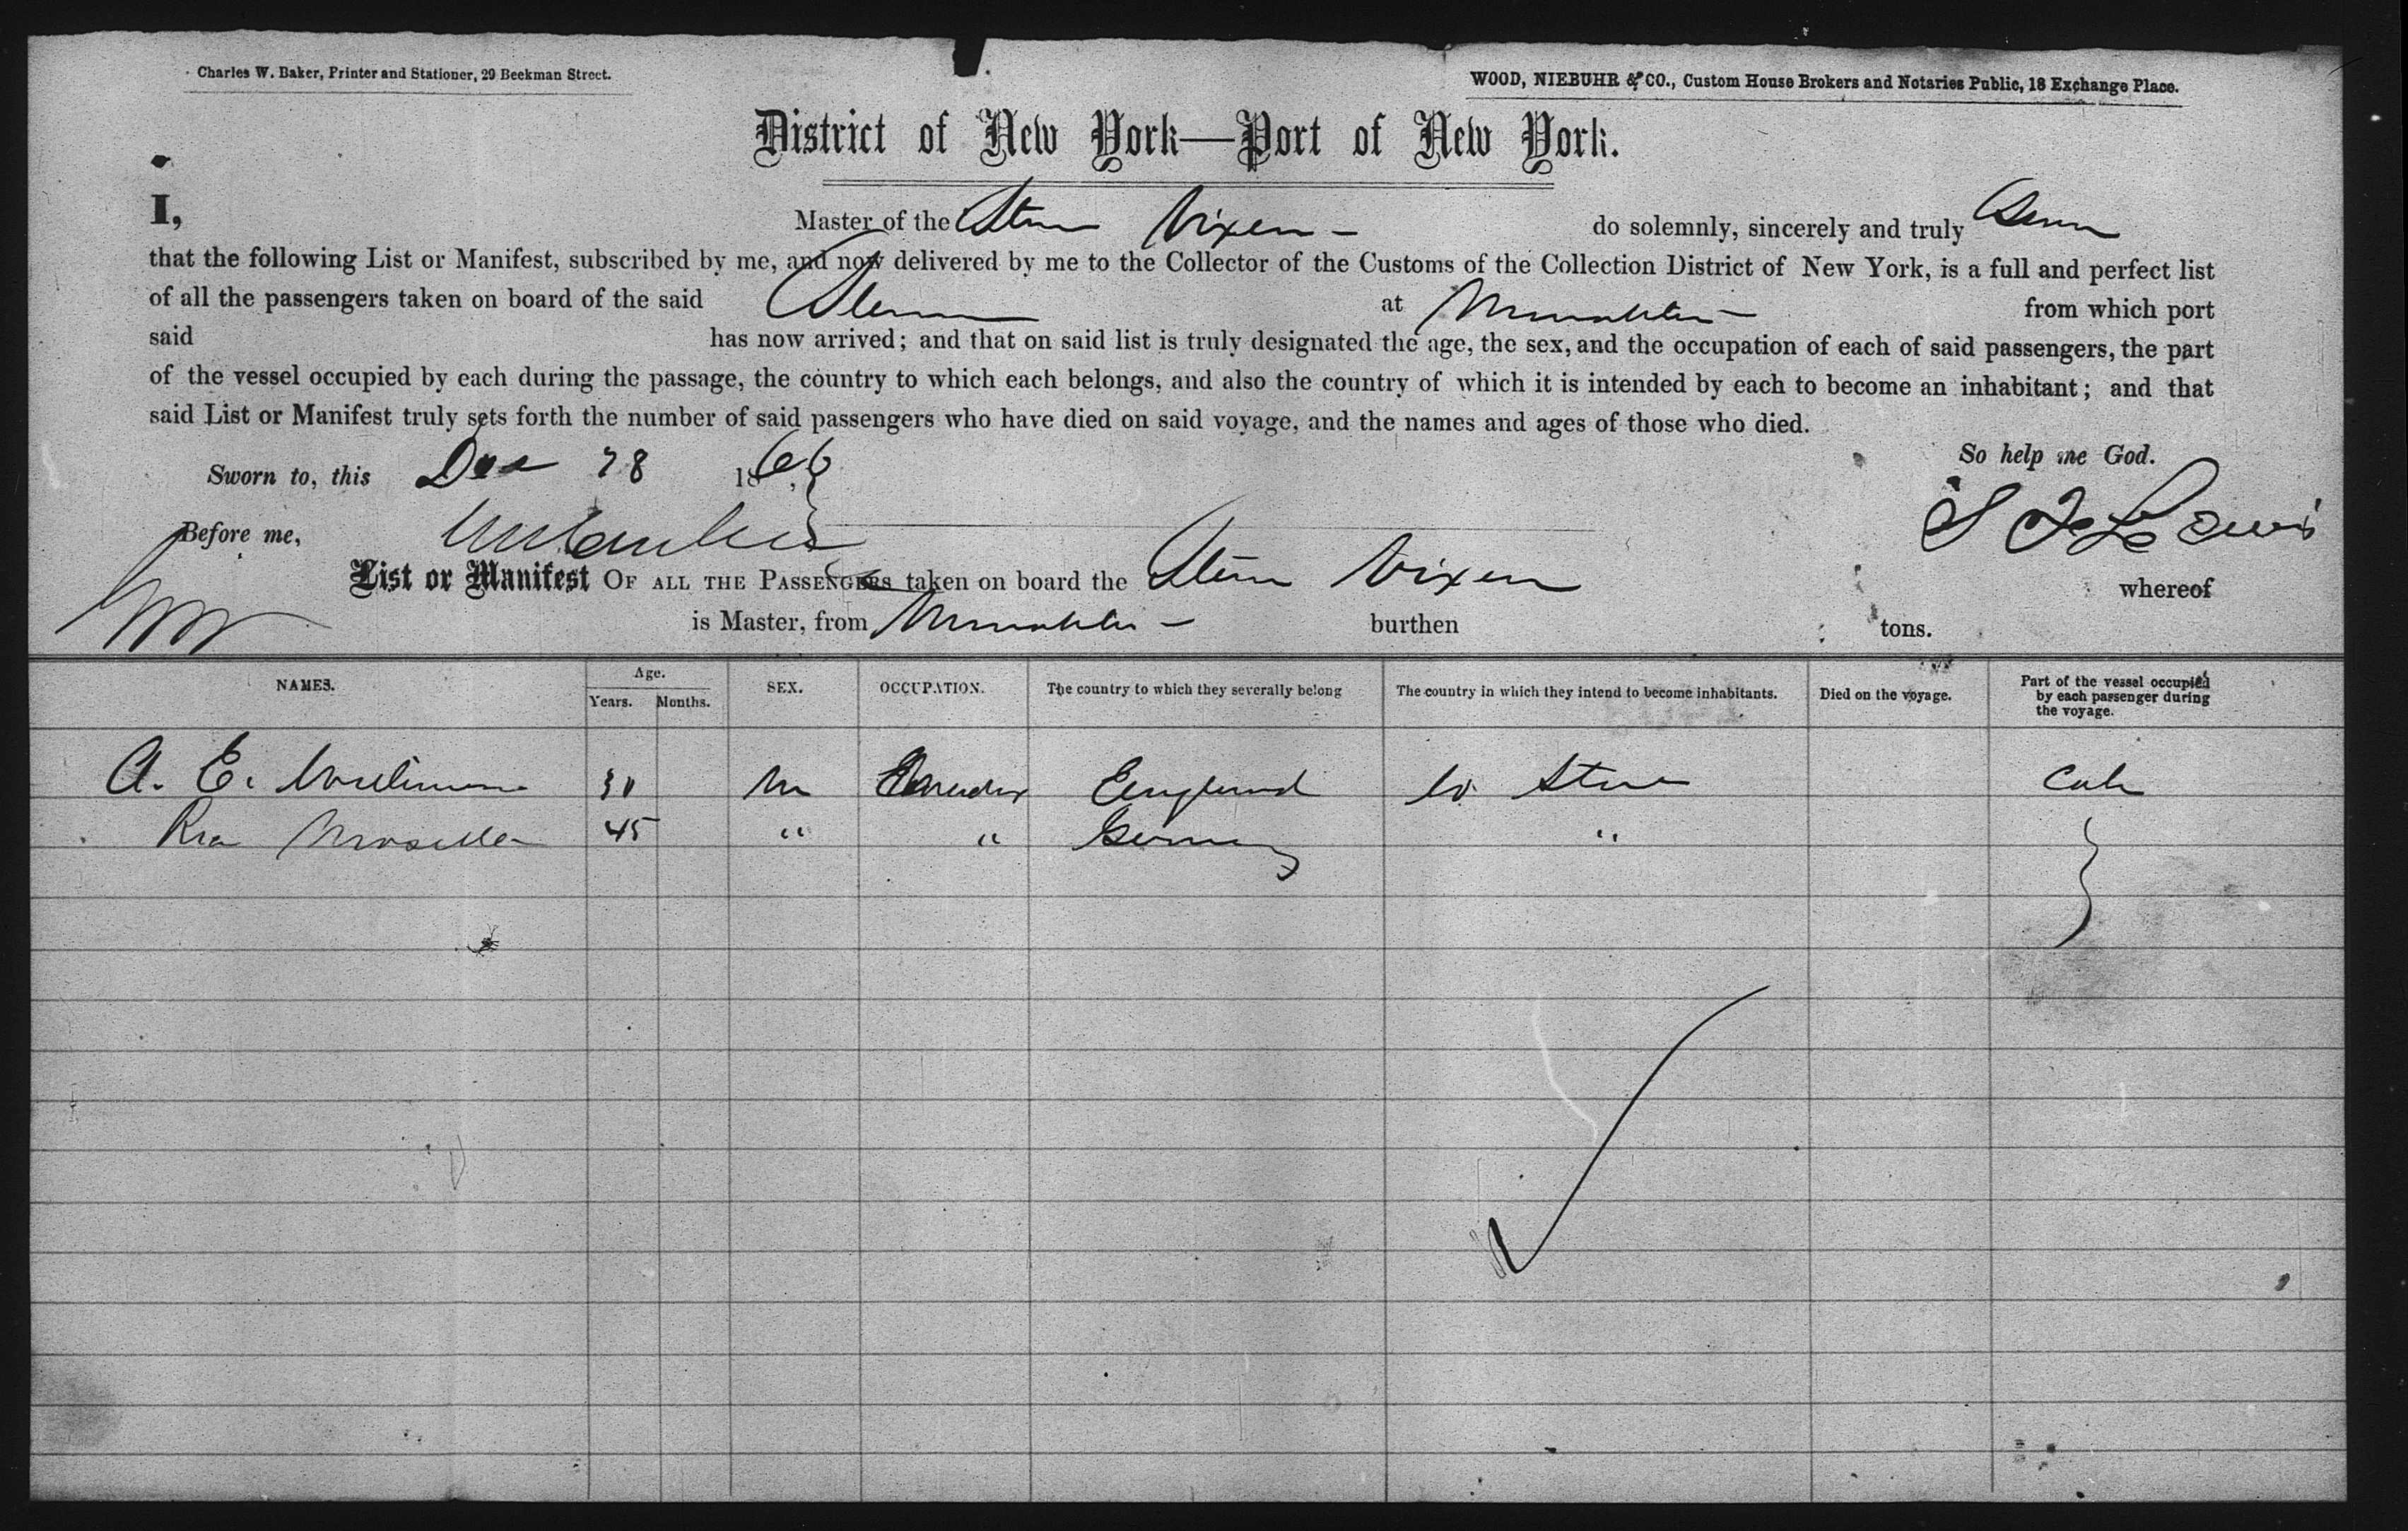 Charles W. Baker, Printer and Stationer, 29 Beekman Street.
WOOD, NIEBUHR & CO., Custom House Brokers and Notaries Public, 18 Exchange Place.
District of New York—Port of New York.
I, Master of the Stmr Vixen - do solemnly, sincerely and truly
that the following List or Manifest, subscribed by me, and now delivered by me to the Collector of the Customs of the Collection District of New York, is a full and perfect list
of all the passengers taken on board of the said at from which port
said has now arrived; and that on said list is truly designated the age, the sex, and the occupation of each of said passengers, the part
of the vessel occupied by each during the passage, the country to which each belongs, and also the country of which it is intended by each to become an inhabitant; and that
said List or Manifest truly sets forth the number of said passengers who have died on said voyage, and the names and ages of those who died.
So help me God.
Sworn to, this Dec 28 1866,
Before me,
Lewis
List or Manifest OF ALL THE PASSENGERS taken on board the Vixen whereof
is Master, from burthen tons.
NAMES. Age. Years. Months. SEX. OCCUPATION. The country to which they severally belong The country in which they intend to become inhabitants. Died on the voyage. Part of the vessel occupied by each passenger during the voyage.
A. E. 30 M England
45 " " Germany "